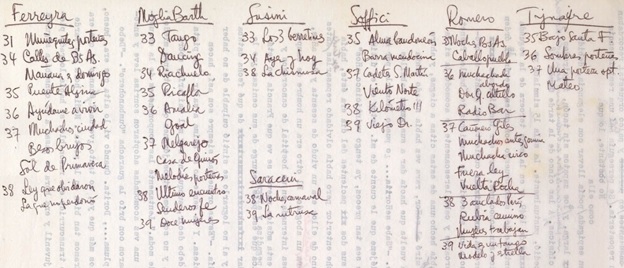 Ferreyra
31 Muñequitas porteñas
34 Calles de Bs As.
Mañana es domingo
35 Puente Alsina
36 Ayúdame a vivir
37 Muchachos ciudad
Besos brujos
Sol de Primavera
38 Ley que olvidaron
La que no perdonó
Moglia Barth
33 Tango
Dancing
34 Riachuelo
35 Picaflor
36 Amalia
Goal
37 Melgarejo
Casa de Quirós
Melodías porteñas
38 Ultimo encuentro
Senderos fe
39 Doce mujeres
Susini
33 Los 3 berretines
34 Ayer y hoy
38 La chismosa
Saraceni
38 Noches carnaval
39 La intrusa
Soffici
35 Alma bandoneón
Barra mendocina
37 Cadetes S. Martín
Viento Norte
38 Kilómetro 111
39 Viejo Dr.
Romero
35 Noches Bs As
Caballo pueblo
36 Muchachada
abordo
Don Q. Altillo
Radio Bar
37 Cañonero Giles
Muchachos antes gomina
Muchacha circo
Fuera ley
Vuelta Rocha
38 3 anclados París
Rubia camino
Mujeres trabajan
39 Vida es un tango
Modelo y estrella
Tignaire
35 Bajo Santa F
36 Sombras porteñas
37 Una porteña opt.
Mateo